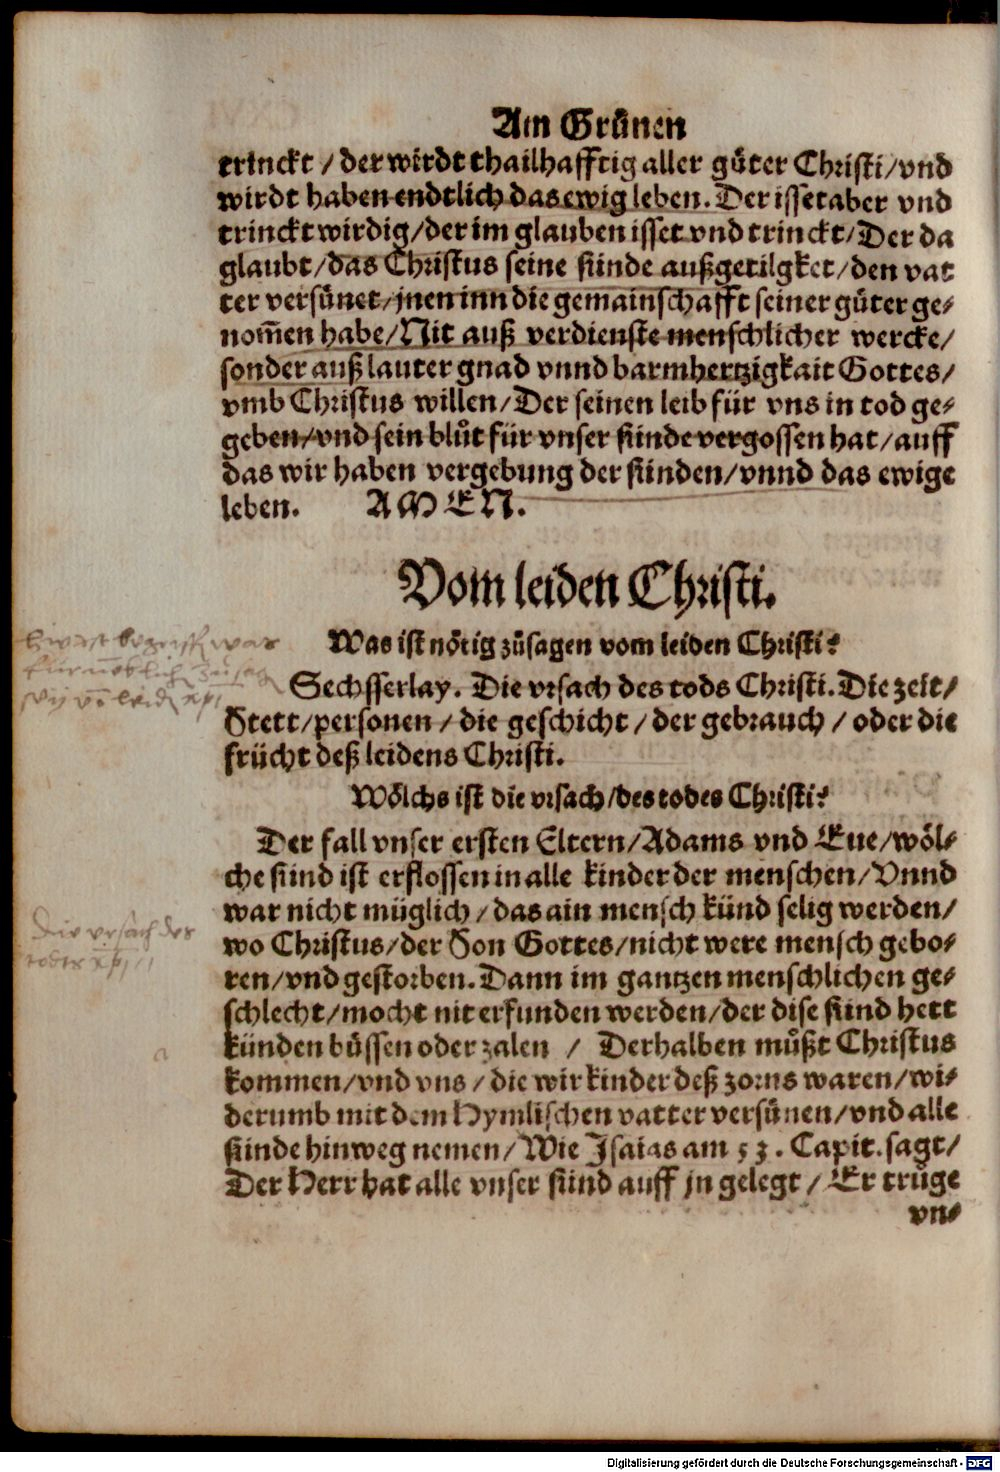 Am Grůnen
trinckt / der wirdt thailhafftig aller gůter Christi/vnd
wirdt haben endtlich das ewig leben. Der isset aber vnd
trinckt wirdig/der im glauben isset vnd trinckt/Der da
glaubt/das Christus seine sünde außgetilgket/den vat
ter versůnet/jnen inn die gemainschafft seiner gůter ge⸗
nom̃en habe/Nit auß verdienste menschlicher wercke/
sonder auß lauter gnad vnnd barmhertzigkait Gottes/
vmb Christus willen/Der seinen leib für vns in tod ge⸗
geben/vnd sein blůt für vnser sünde vergossen hat/auff
das wir haben vergebung der sünden/vnnd das ewige
leben. AMEN.
Vom leiden Christi.
Was ist nötig zůsagen vom leiden Christi?
Sechsserlay. Die vrsach des tods Christi. Die zeit/
Stett/personen/die geschicht/der gebrauch/oder die
frücht deß leidens Christi.
Wölchs ist die vrsach/des todes Christi?
Die vrsach des
todes
Der fall vnser ersten Eltern/Adams vnd Eue/wöl⸗
che sünd ist erflossen in alle kinder der menschen/Vnnd
war nicht müglich/das ain mensch künd selig werden/
wo Christus/der Son Gottes/nicht were mensch gebo⸗
ren/vnd gestorben. Dann im gantzen menschlichen ge⸗
schlecht/mocht nit erfunden werden/der dise sünd hett
künden bůssen oder zalen / Derhalben můßt Christus
kommen/vnd vns/die wir kinder deß zorns waren/wi⸗
derumb mit dem Hymlischen vatter versůnen/vnd alle
sünde hinweg nemen/Wie Isaias am 53. Capit. sagt/
Der Herr hat alle vnser sünd auff jn gelegt / Er trůge
vn⸗
Digitalisierung gefördert durch die Deutsche Forschungsgemeinschaft - DFG